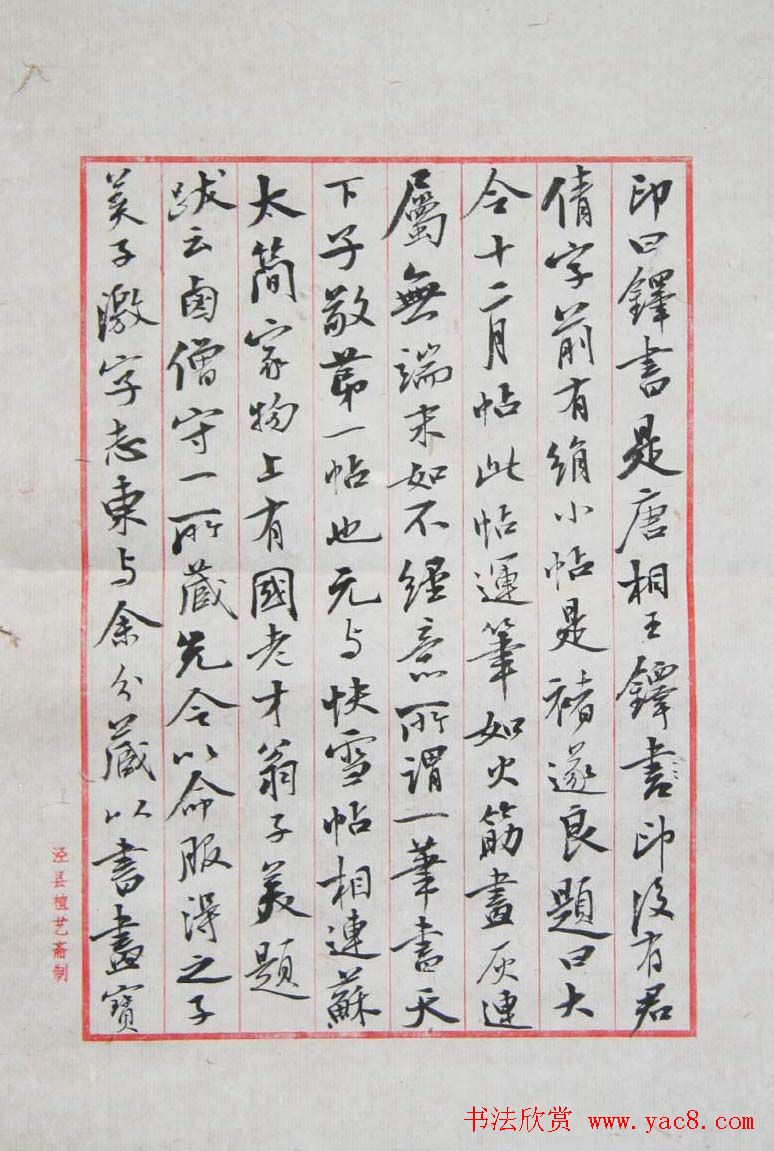 印曰鐸書是唐相王鐸書印後有君
倩字前有絹小帖是褚遂良題曰大
令十二月帖此帖運筆如火筯畫灰連
屬無端末如不經意所謂一筆書天
下子敬苐一帖也元与快雪帖相連蘇
太簡家物上有國老才翁子美題
跋云鹵僧守一所藏先令以命服得之子
美子激字志東与余分藏以書畫寶
泾县植艺斋制
书法欣赏 www.yac8.com